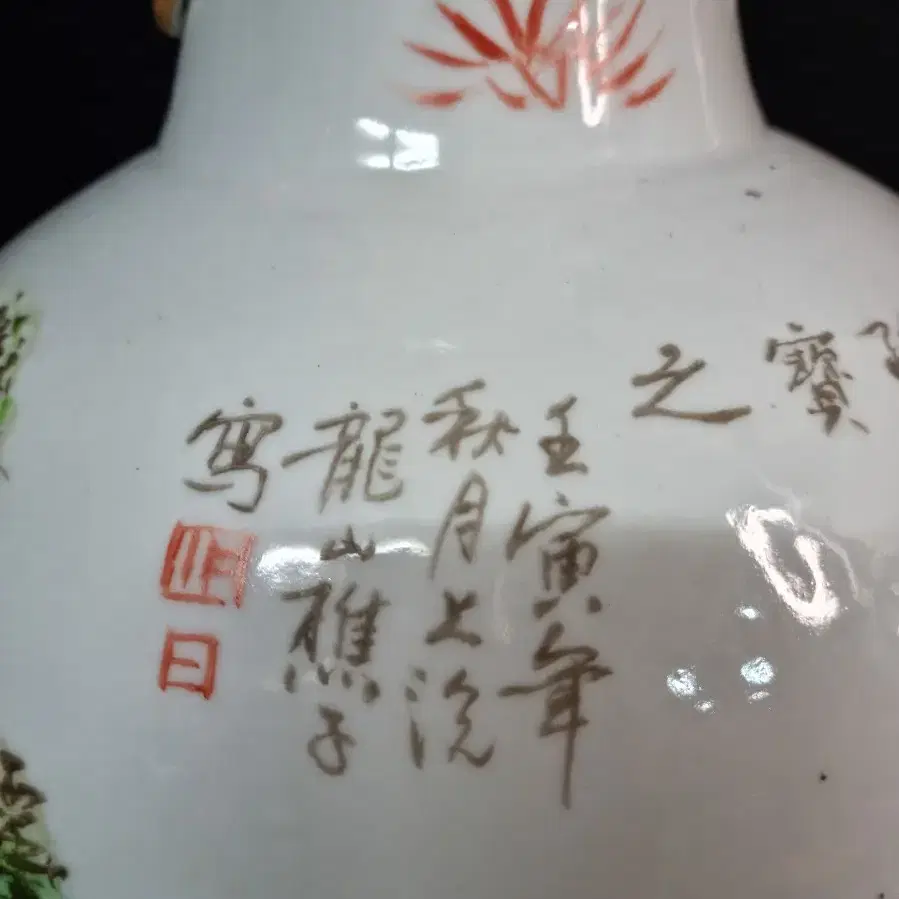 寶
之
壬寅年
秋月上浣
龍山樵子
寫